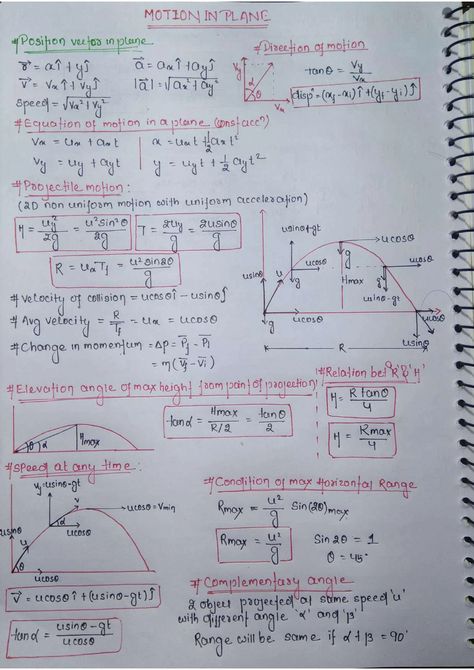 MOTION IN PLANE
# Position vector in plane
r⃗ = xî + yĵ    a⃗ = aₓî + a_yĵ
v⃗ = vₓî + v_yĵ    |a⃗| = √(aₓ² + a_y²)
speed = √(vₓ² + v_y²)
# Direction of motion
v_y
α
θ
vₓ
tanθ = v_y/vₓ
disp⃗ = (x_f - x_i)î + (y_f - y_i)ĵ
# Equation of motion in a plane (const accⁿ)
vₓ = uₓ + aₓt    x = uₓt + ½aₓt²
v_y = u_y + a_yt    y = u_yt + ½a_yt²
# Projectile motion :
(2D non uniform motion with uniform acceleration)
H = u_y²/2g = u²sin²θ/2g    T = 2u_y/g = 2usinθ/g
R = uₓT_f = u²sin2θ/g
# Velocity of collision = ucosθî - usinθĵ
# Avg velocity = R/T_f = uₓ = ucosθ
# Change in momentum = ΔP = P⃗_f - P⃗_i
= m(v⃗_f - v⃗_i)
usinθ-gt
ucosθ
g
usinθ
u
ucosθ
g
Hmax
g
ucosθ
usinθ-gt
θ
g
ucosθ
ucosθ
R
# Elevation angle of max height from point of projection
θ
α
Hmax
tanα = Hmax/(R/2) = tanθ/2
# Relation bet 'R' & 'H'
H = R tanθ/4
H = Rmax/4
# Speed at any time :
v_y = usinθ-gt
v
α
ucosθ
ucosθ = Vmin
usinθ
u
θ
ucosθ
v⃗ = ucosθî + (usinθ-gt)ĵ
tanα = (usinθ - gt)/ucosθ
# Condition of max Horizontal Range
Rmax = u²/g Sin(2θ)max
Rmax = u²/g    Sin2θ = 1
θ = 45°
# Complementary angle
2 object projected at same speed 'u'
with different angle 'α' and 'β'
Range will be same if α + β = 90°